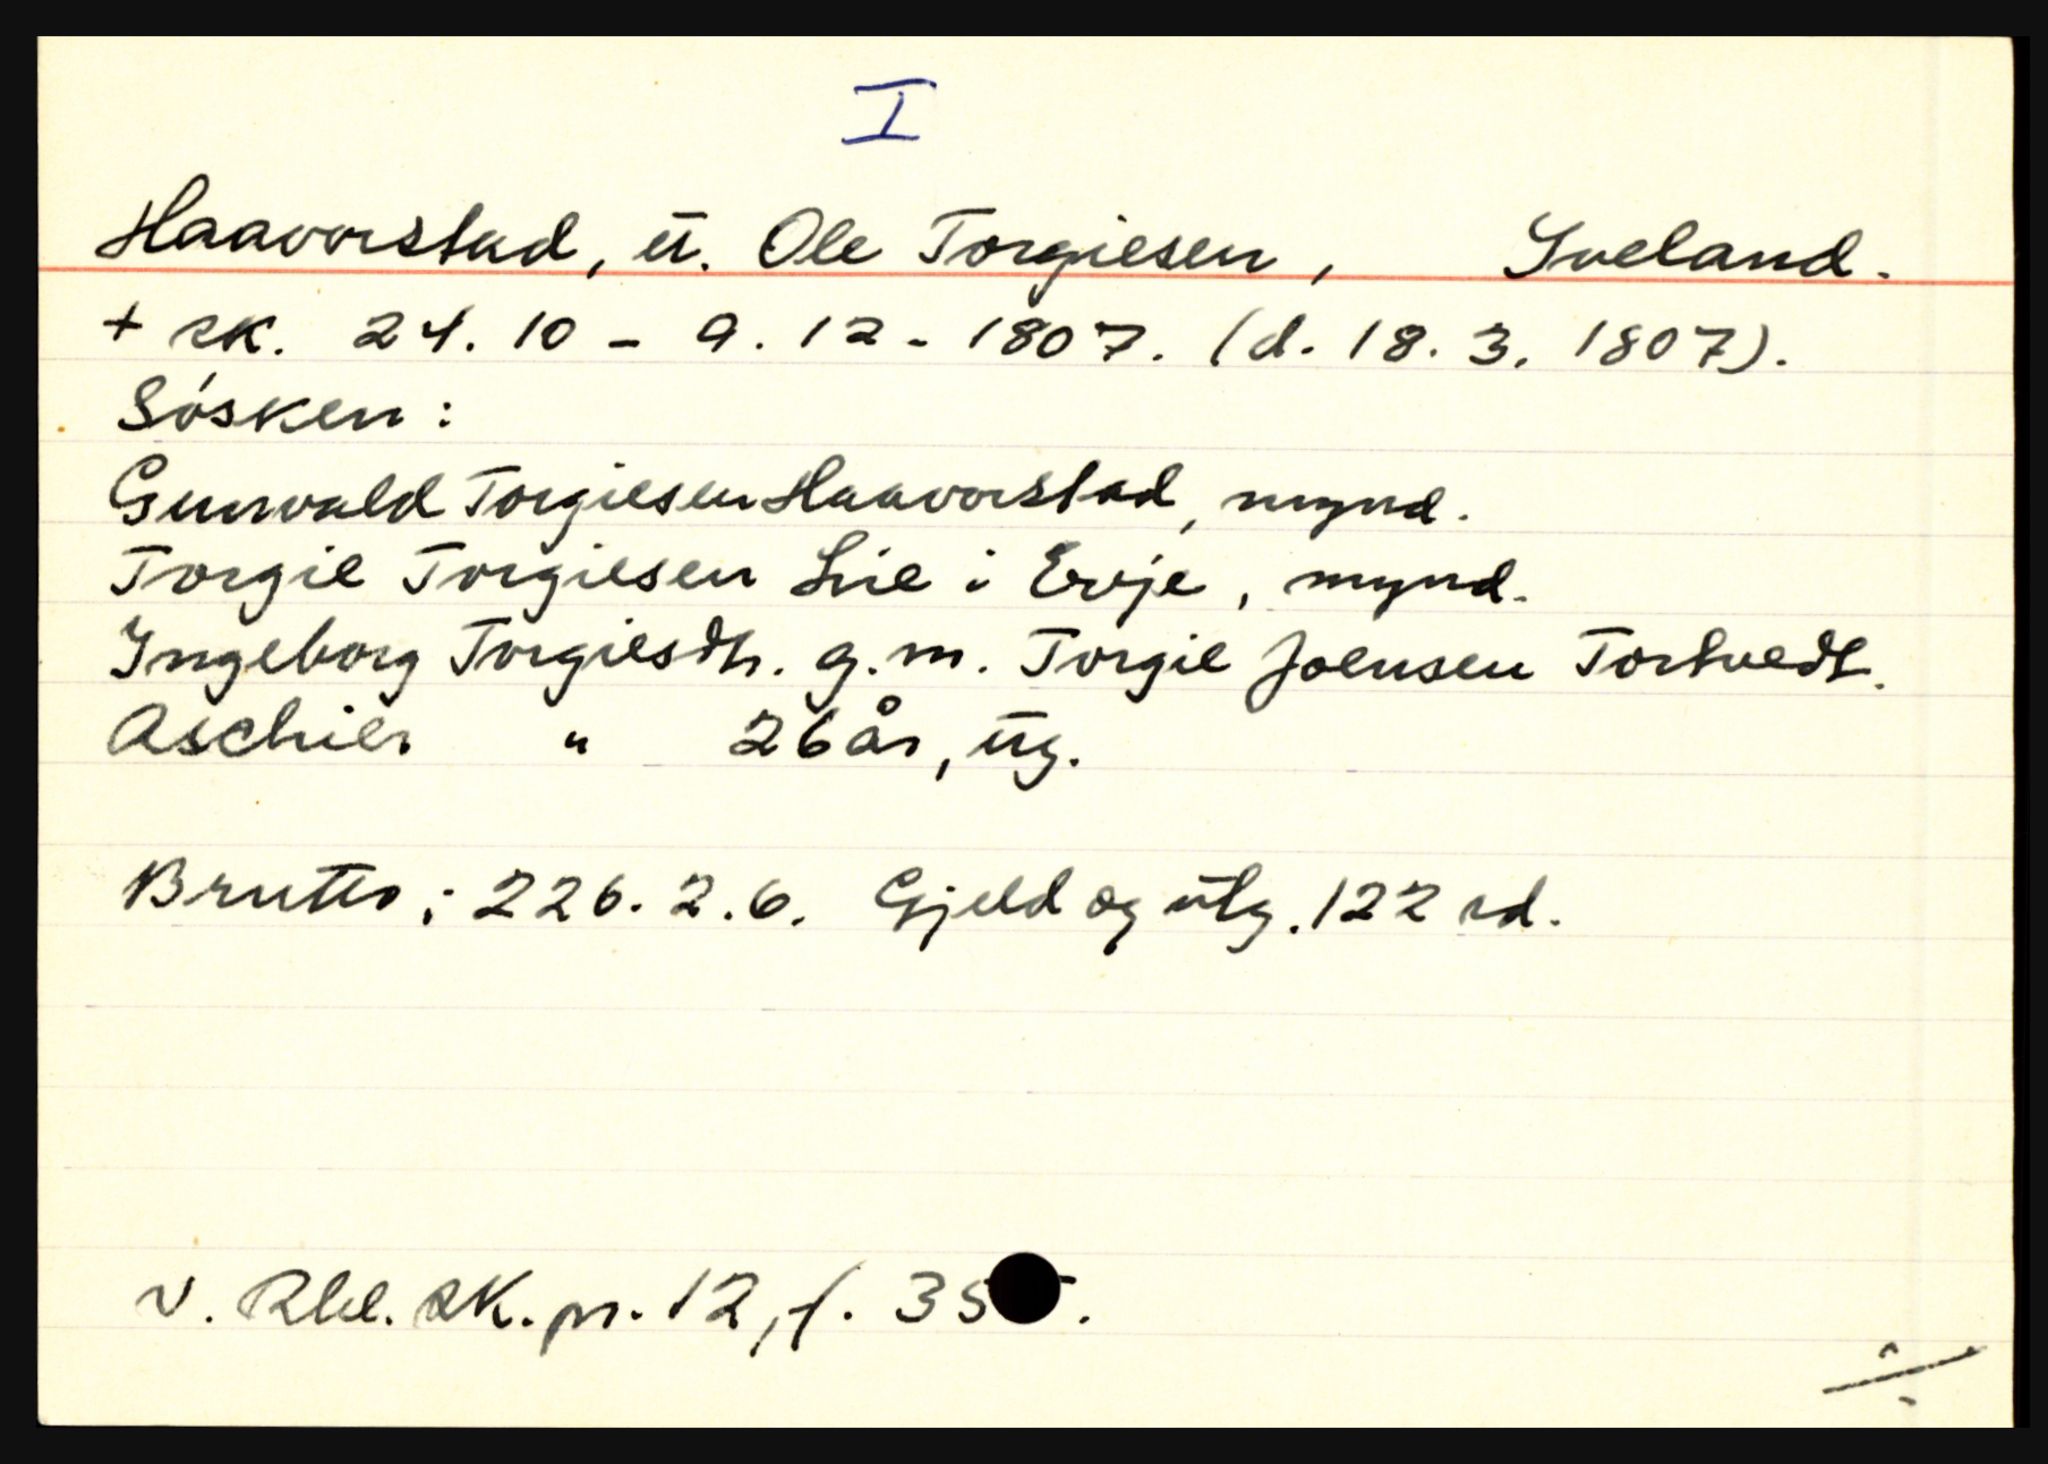 I
Haavorstad, u. Ole Torgiesen, Iveland.
+ sk. 24. 10 - 9. 12 - 1807. (d. 18. 3. 1807).
Sósken:
Gunvald Torgiesen Haavorstad, mynd.
Torgie Torgiesen Lie i Evje, mynd.
Ingeborg Torgiesdtr. g.m. Torgie Joensen Tortvedt.
Aschier " 26 år, ug.
Brutto: 226. 2. 6. Gjeld og utg. 122 rd.
v. Rbl. sk. pr. 12, f.